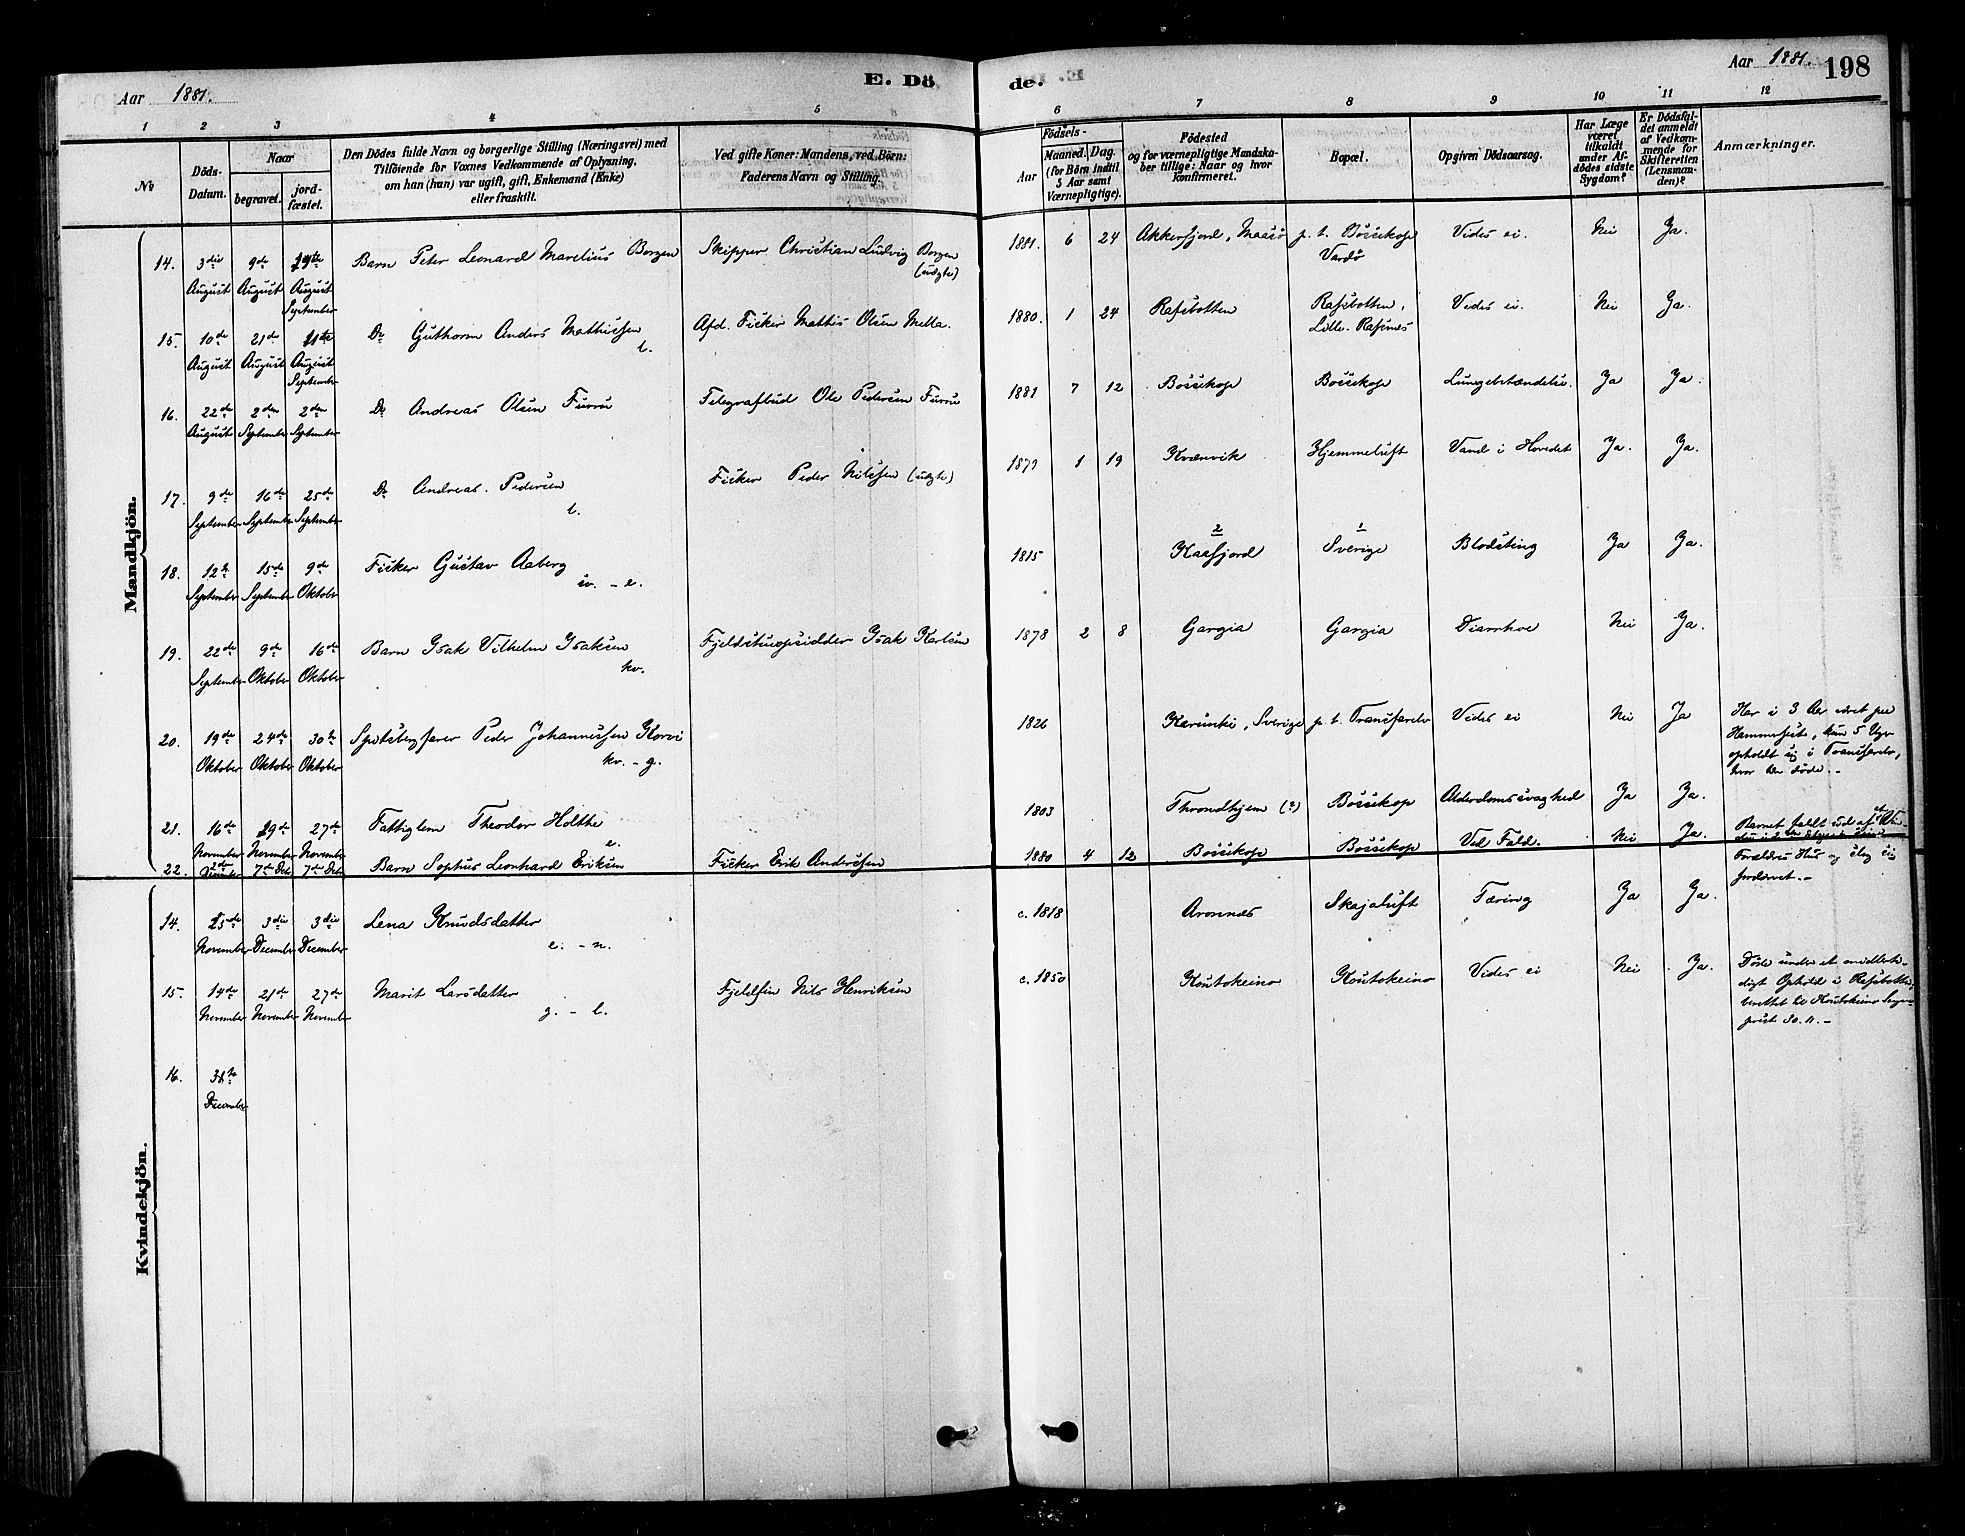 Aar 1881.
E. Dö
de.
Aar 1881.
198
1 2 3 4 5 6 7 8 9 10 11 12
No
Döds-
Datum.
Naar
begravet.
jord-
fæstet.
Den Dödes fulde Navn og borgerlige Stilling (Næringsvei) med
Tilföiende for Voxnes Vedkommende af Oplysning,
om han (hun) var ugift, gift, Enkemand (Enke)
eller fraskilt.
Ved gifte Koner: Mandens, ved Børn:
Faderens Navn og Stilling.
Födsels-
Aar
Maaned. Dag.
(for Börn indtil
5 Aar samt
Værnepligtige).
Födested
og for værnepligtige Mandska-
ber tillige: Naar og hvor
konfirmeret.
Bopæl.
Opgiven Dödsaarsag.
Har Læge
været
tilkaldt
under Af-
dödes sidste
Sygdom?
Er Dödsfal-
det anmeldt
af Vedkom-
mende for
Skifteretten
(Lensman-
den)?
Anmærkninger.
Mandkjön.
14. 3die August 9de August August Barn Peter Leonard Marelius Borgen Skipper Christian Ludvig Borgen (uægte) 1881. 6 24 Akkerfjord, Maasø p. t. Bossekop Vardø Vides ei. Nei Ja.
September
15. 10de August 21de August August Do Guthorm Anders Mathissen l. Afd. Fisker Mathis Olsen Mella. 1880. 1 24 Rafsbotten Rafsbotten, Lille-Rafsnes Vides ei. Nei Ja.
September
16. 22de August 2den September 2den September Do Andreas Olsen Furru Telegrafbud Ole Pedersen Furru 1881 7 12 Bossekop Bossekop Lungebetændelse. Ja Ja.
17. 9de September 16de September 25de September Do Andreas Pedersen l. Fisker Peder Nilssen (uægte) 1879 1 19 Kvænvik Hjemmeluft Vand i Hovedet Ja. Ja.
18. 12te September 15de September 9de Oktober Fisker Gustav Aaberg sv. - e. 1815 2 Kaafjord 1 Sverige Blodsting Ja Ja.
19. 22de September 9de Oktober 16de Oktober Barn Isak Vilhelm Isaksen kv. Fjeldstueopsidder Isak Karlsen 1878 2 8 Gargia Gargia Diarrhoe Nei Ja.
20. 19de Oktober 24de Oktober 30te Oktober Spitsbergfarer Peder Johannessen Korvi kv. - g. 1826 Karunki, Sverige p. t. Transfarelv Vides ei Nei Ja Har i 3 Aar været paa
Hammerfest, kun 5 Uger
opholdt sig i Transfarelv,
hvor han døde. -
21. 16de November 19de November 27de November Fattiglem Theodor Holthe e. 1803 Throndhjem (?) Bossekop Alderdomssvaghed Ja Ja.
22. 2de December 7de Deb 7de Deb Barn Sophus Leonhard Eriksen Fisker Erik Anderssen 1880 4 12 Bossekop Bossekop Ved Fald. Nei Ja. Barnet faldt ud af
Forældres Hus og slog sig
fordærvet. -
Kvindekjön.
14. 25de November 3die December 3die December Lena Knudsdatter e. - n. c. 1818 Aronnæs Skajaluft Tæring Ja Ja.
15. 14de November 21de November 27de November Marit Larsdatter g. - l. Fjeldfin Nils Henriksen c. 1850 Koutokeino Koutokeino Vides ei Nei Ja. Døde under et midlerti-
digt Ophold i Rafsbotten,
berettet til Koutokeino Sogne-
prest
16. 31te December